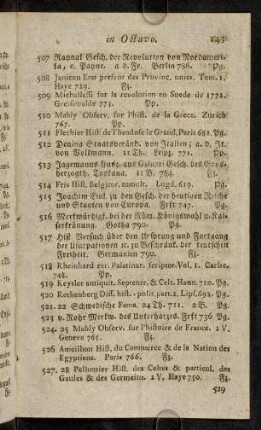 in Octavo. 245
507 Raynal Gesch. der Revolution von Nordameri-
ka, e. Payne. a. d. Fr. Berlin 786. Pg.
508 Janicon Etat present des Provinc. unies. Tom. 1.
Haye 729. Fz.
509 Michelessi for la revolution en Suede de 1772.
Greifswalde 773. Pp.
510 Mably Observ. sur l'hist. de la Grece. Zürch
767. Pp.
511 Flechier Hist de Theodose le Grand. Paris 681. Pg.
512 Denina Staatsveränd. von Italien; a. d. It.
von Volkmann. 11 Th. Leipz. 771. Pp.
513 Jagemanns aus Galuzzi Gesch. des Gros-
herzogth. Toskana. 11 B. 784. Fz.
514 Fris Hist. Belgicor. tumult. Lugd. 619. Pg.
515 Joachim Einl. zu den Gesch. der heutigen Reiche
und Staaten von Europa. Frft 747. Pg.
516 Merkwürdigk. bei der Röm. Königswahl u. Kai-
serkrönung. Gotha 790. Pg.
517 Hist Versuch über den Ursprung und Fortgang
der Usurpationen zc. zu Beschränk. der teutschen
Freiheit. Germanien 790. Fz.
518 Rheinhard rer. Palatinar. scriptor. Vol. 1. Carlsr.
748. Pp.
519 Keysler antiquit. Septentr. & Celt. Hann. 720. Pg.
520 Rothenberg Diss. hist. - polit. part. 2. Lips. 691. Pg.
521. 22 Schwedische Fama. 24 Th. 711. 2 B. Pg.
523 v. Rohr Merkw. des Unterharzes. Frft 736 Pg.
524. 25 Mably Observ. sur l'histoire de France. 2 V.
Geneve 765. Fz.
526 Ameilhon Hist. du Commerce & de la Nation des
Egyptiens. Paris 766. Fz.
527. 28 Pelloutier Hist. des Celtes & particul. des
Gaules & des Germains. 2 V, Haye 750. Fz.
529